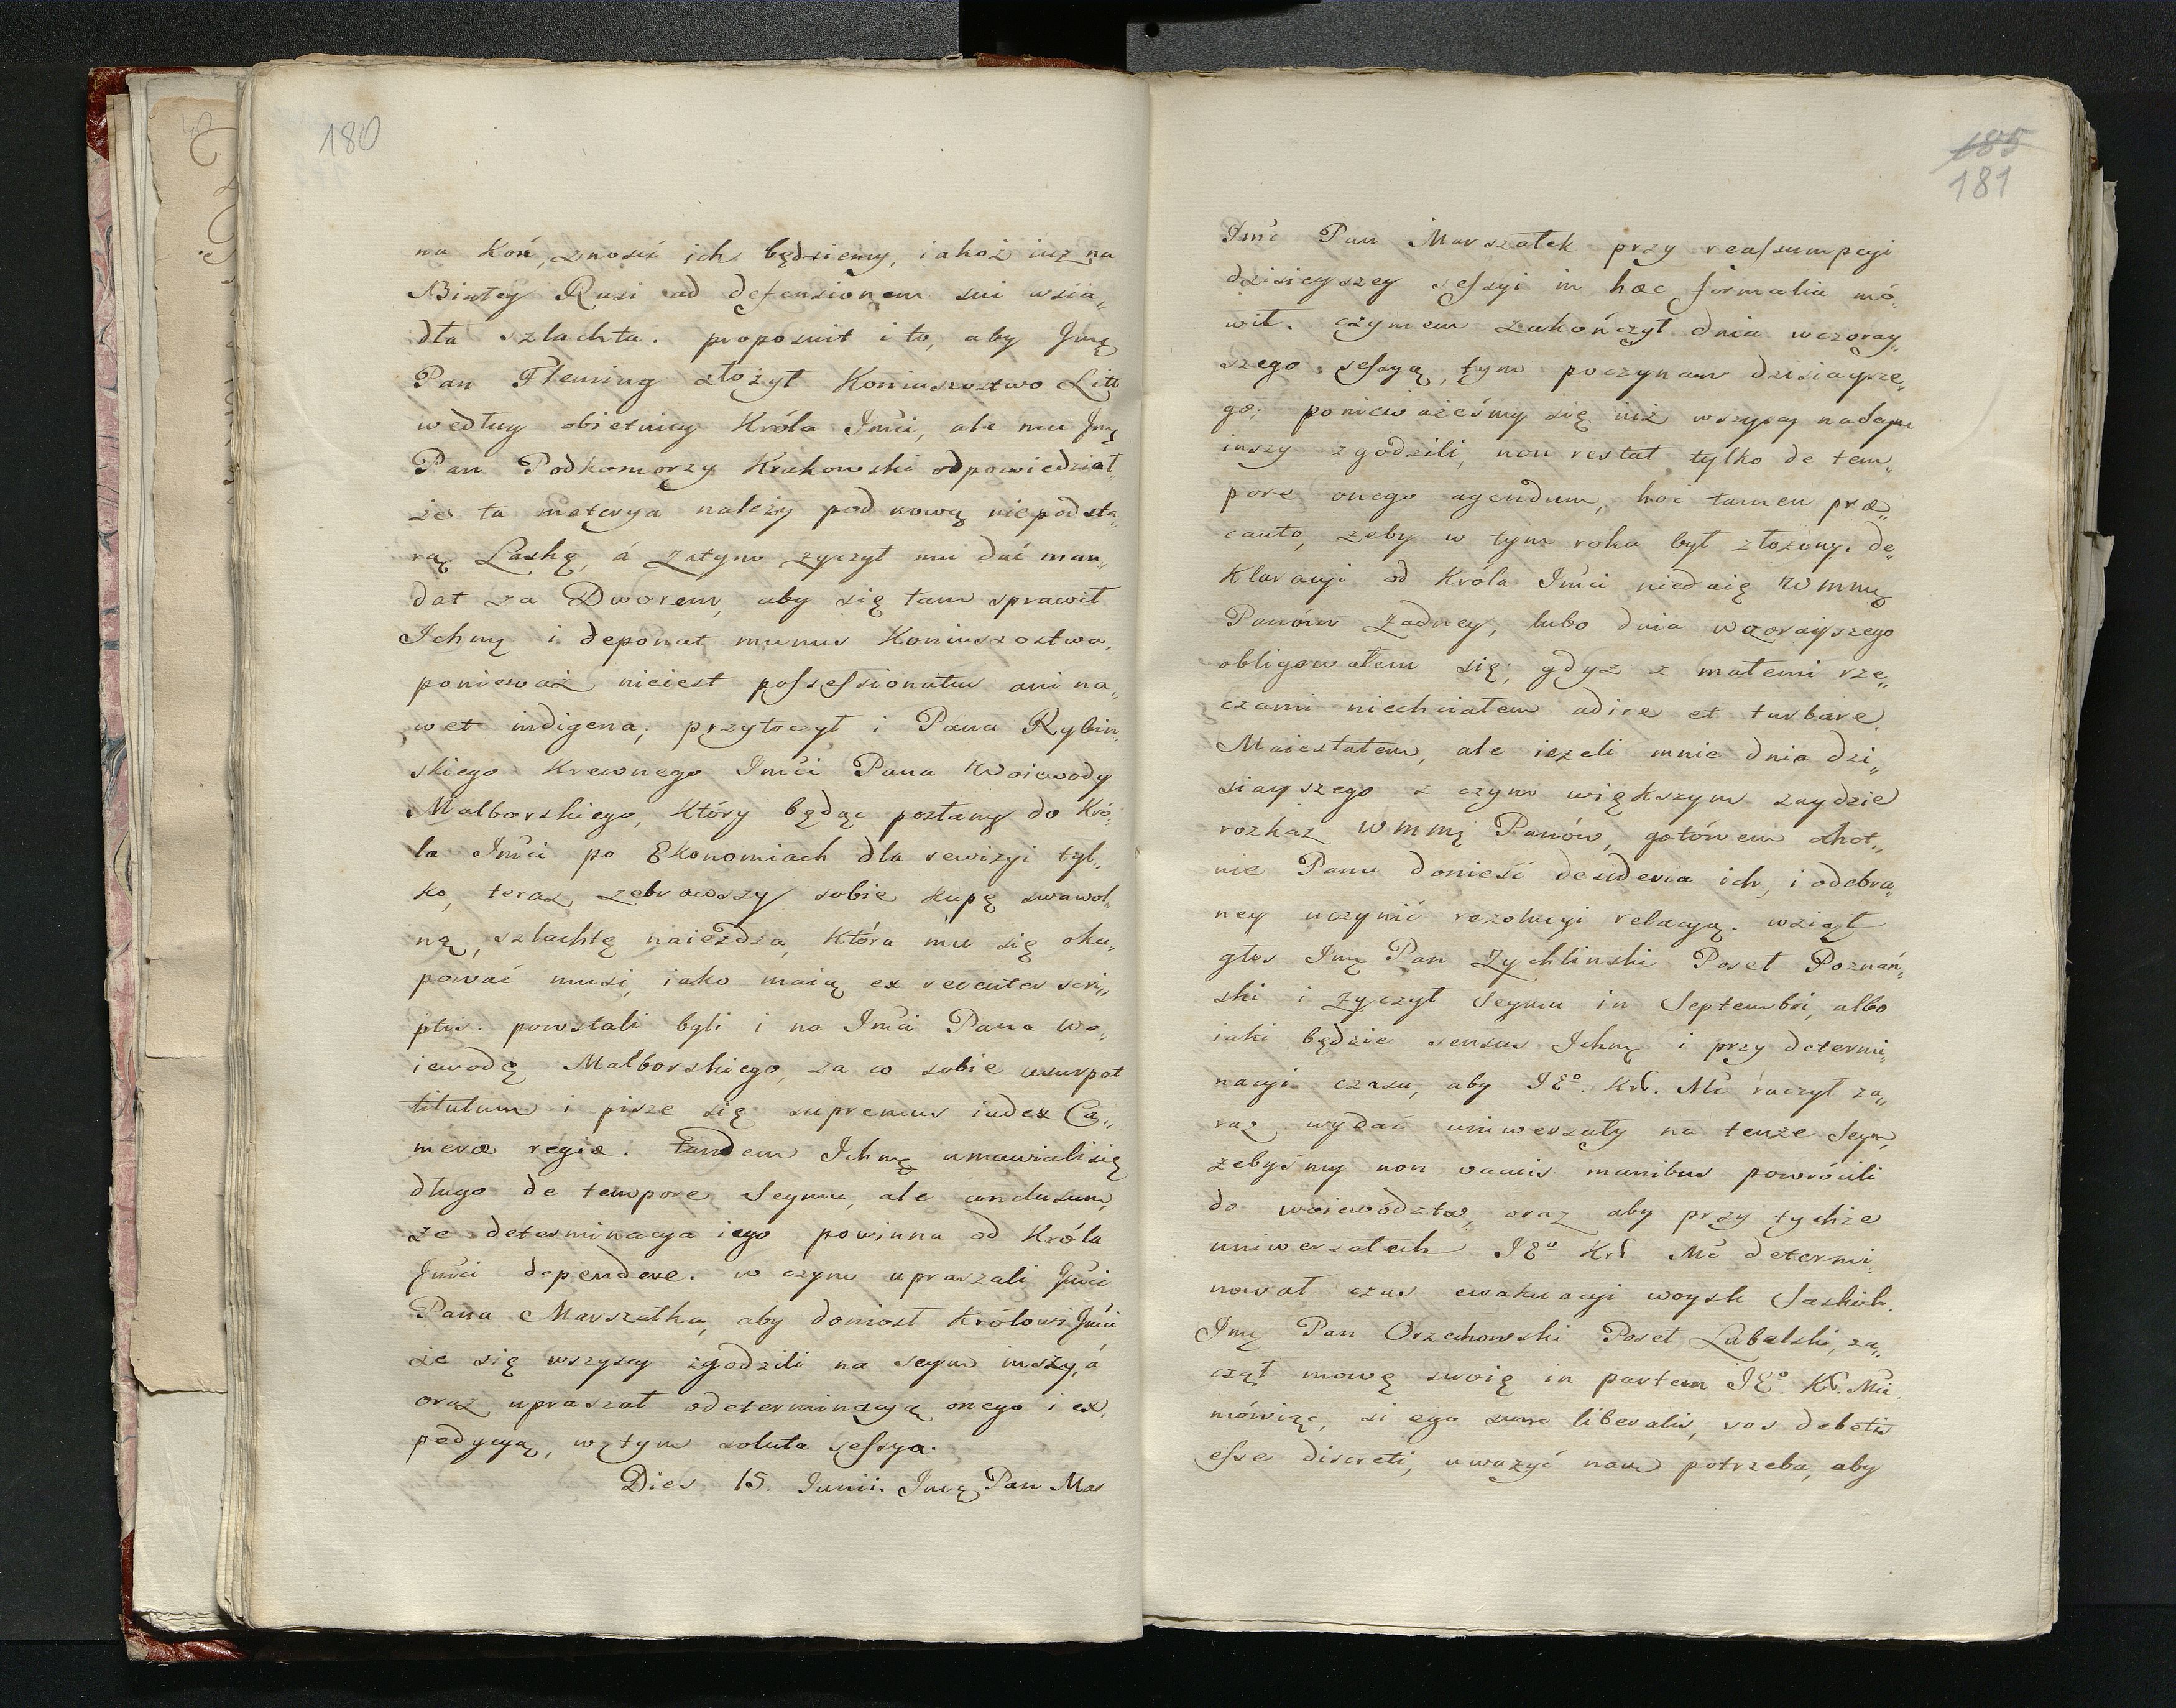 180
na Koń, znosić ich będziemy, iakoż iuż na
Białey Rusi ad defensionem sui wsia„
dła szlachta. proposuit i to, aby Jmę
Pan Fleming złożył Koniuszostwo Litt
według obietnicy Króla Jmci, ale mu Jmę
Pan Podkomorzy Krakowski odpowiedział
że ta materya należy pod nową niepodsta„
rą Laskę, á zatym zyczył mu dać man„
dat za Dworem, aby się tam sprawił
Ichmę i deponat munus Koniuszostwa,
ponieważ nieiest possessionatus ani na„
wet indigena; przytoczył i Pana Rybin„
skiego Krewnego Jmci Pana Woiewody
Malborskiego, Który będąc posłany do Kró„
la Jmci po Ekonomiach dla rewizyi tyl„
ko, teraz zebrawszy sobie kupę swawol„
ną, szlachtę naieżdża, Która mu się oku„
pować musi, iako maią ex recenter scri„
ptis. powstali byli i na Jmci Pana Wo„
iewodę Malborskiego, za co sobie usurpat
titulum i pisze się supremus iudex Ca„
meræ regiæ. tandem Ichmę umawiali się
długo de tempore Seymu, ale conclusum,
że determinacya iego powinna od Króla
Jmci dependere. w czym upraszali Jmci
Pana Marszałka, aby doniosł Królowi Jmci
że się wszyscy zgodzili na seym inszy, á
oraz upraszał o determinacyą onego i ex„
pedycyą, w tym soluta sessya.
Dies 15. Junii. Jmę Pan Mar
185
181
Jmć Pan Marszałek przy reassumpcyi
dzisieyszey sessyi in hæc formalia mó„
wił. czymem zakończył dnia wczoray„
szego sessyą, tym poczynam dzisiaysze„
go; ponieważeśmy się iuż wszyscy na seym
inszy zgodzili, non restat tylko de tem„
pore onego agendum, hoc tamen præ„
cauto, żeby w tym roku był złożony. de„
klaracyi od Króla Jmci niedaię Wmmę
Panów żadney, lubo dnia wczorayszego
obligowałem się; gdyż z małemi rze„
czami niechciałem adire et turbare
Maiestatem, ale ieżeli mnie dnia dzi„
siayszego z czym większym zaydzie
rozkaz Wmmę Panów, gotówem ochot„
nie Panu donieść desideria ich, i odebra„
ney uczynić rezolucyi relacyą. wziął
głos Jmę Pan Żychlinski Poseł Poznań„
ski i życzył Seymu in Septembri, albo
iaki będzie sensus Ichmę i przy determi„
nacyi czasu, aby JEº. Krl. Mć raczył za„
raz wydać uniwersały na tenże Seym,
żebyśmy non vacuis manibus powrócili
do woiewództw, oraz aby przy tychże
uniwersałach JEº Krl Mć determi„
nował czas ewakuacyi woysk Saskich.
Jmę Pan Orzechowski Poseł Lubelski, za„
czął mowę swoię in partem JEº. Kr. Mci
mówiąc, si ego sum liberalis, vos debetis
esse discreti, uważyć nam potrzeba, aby